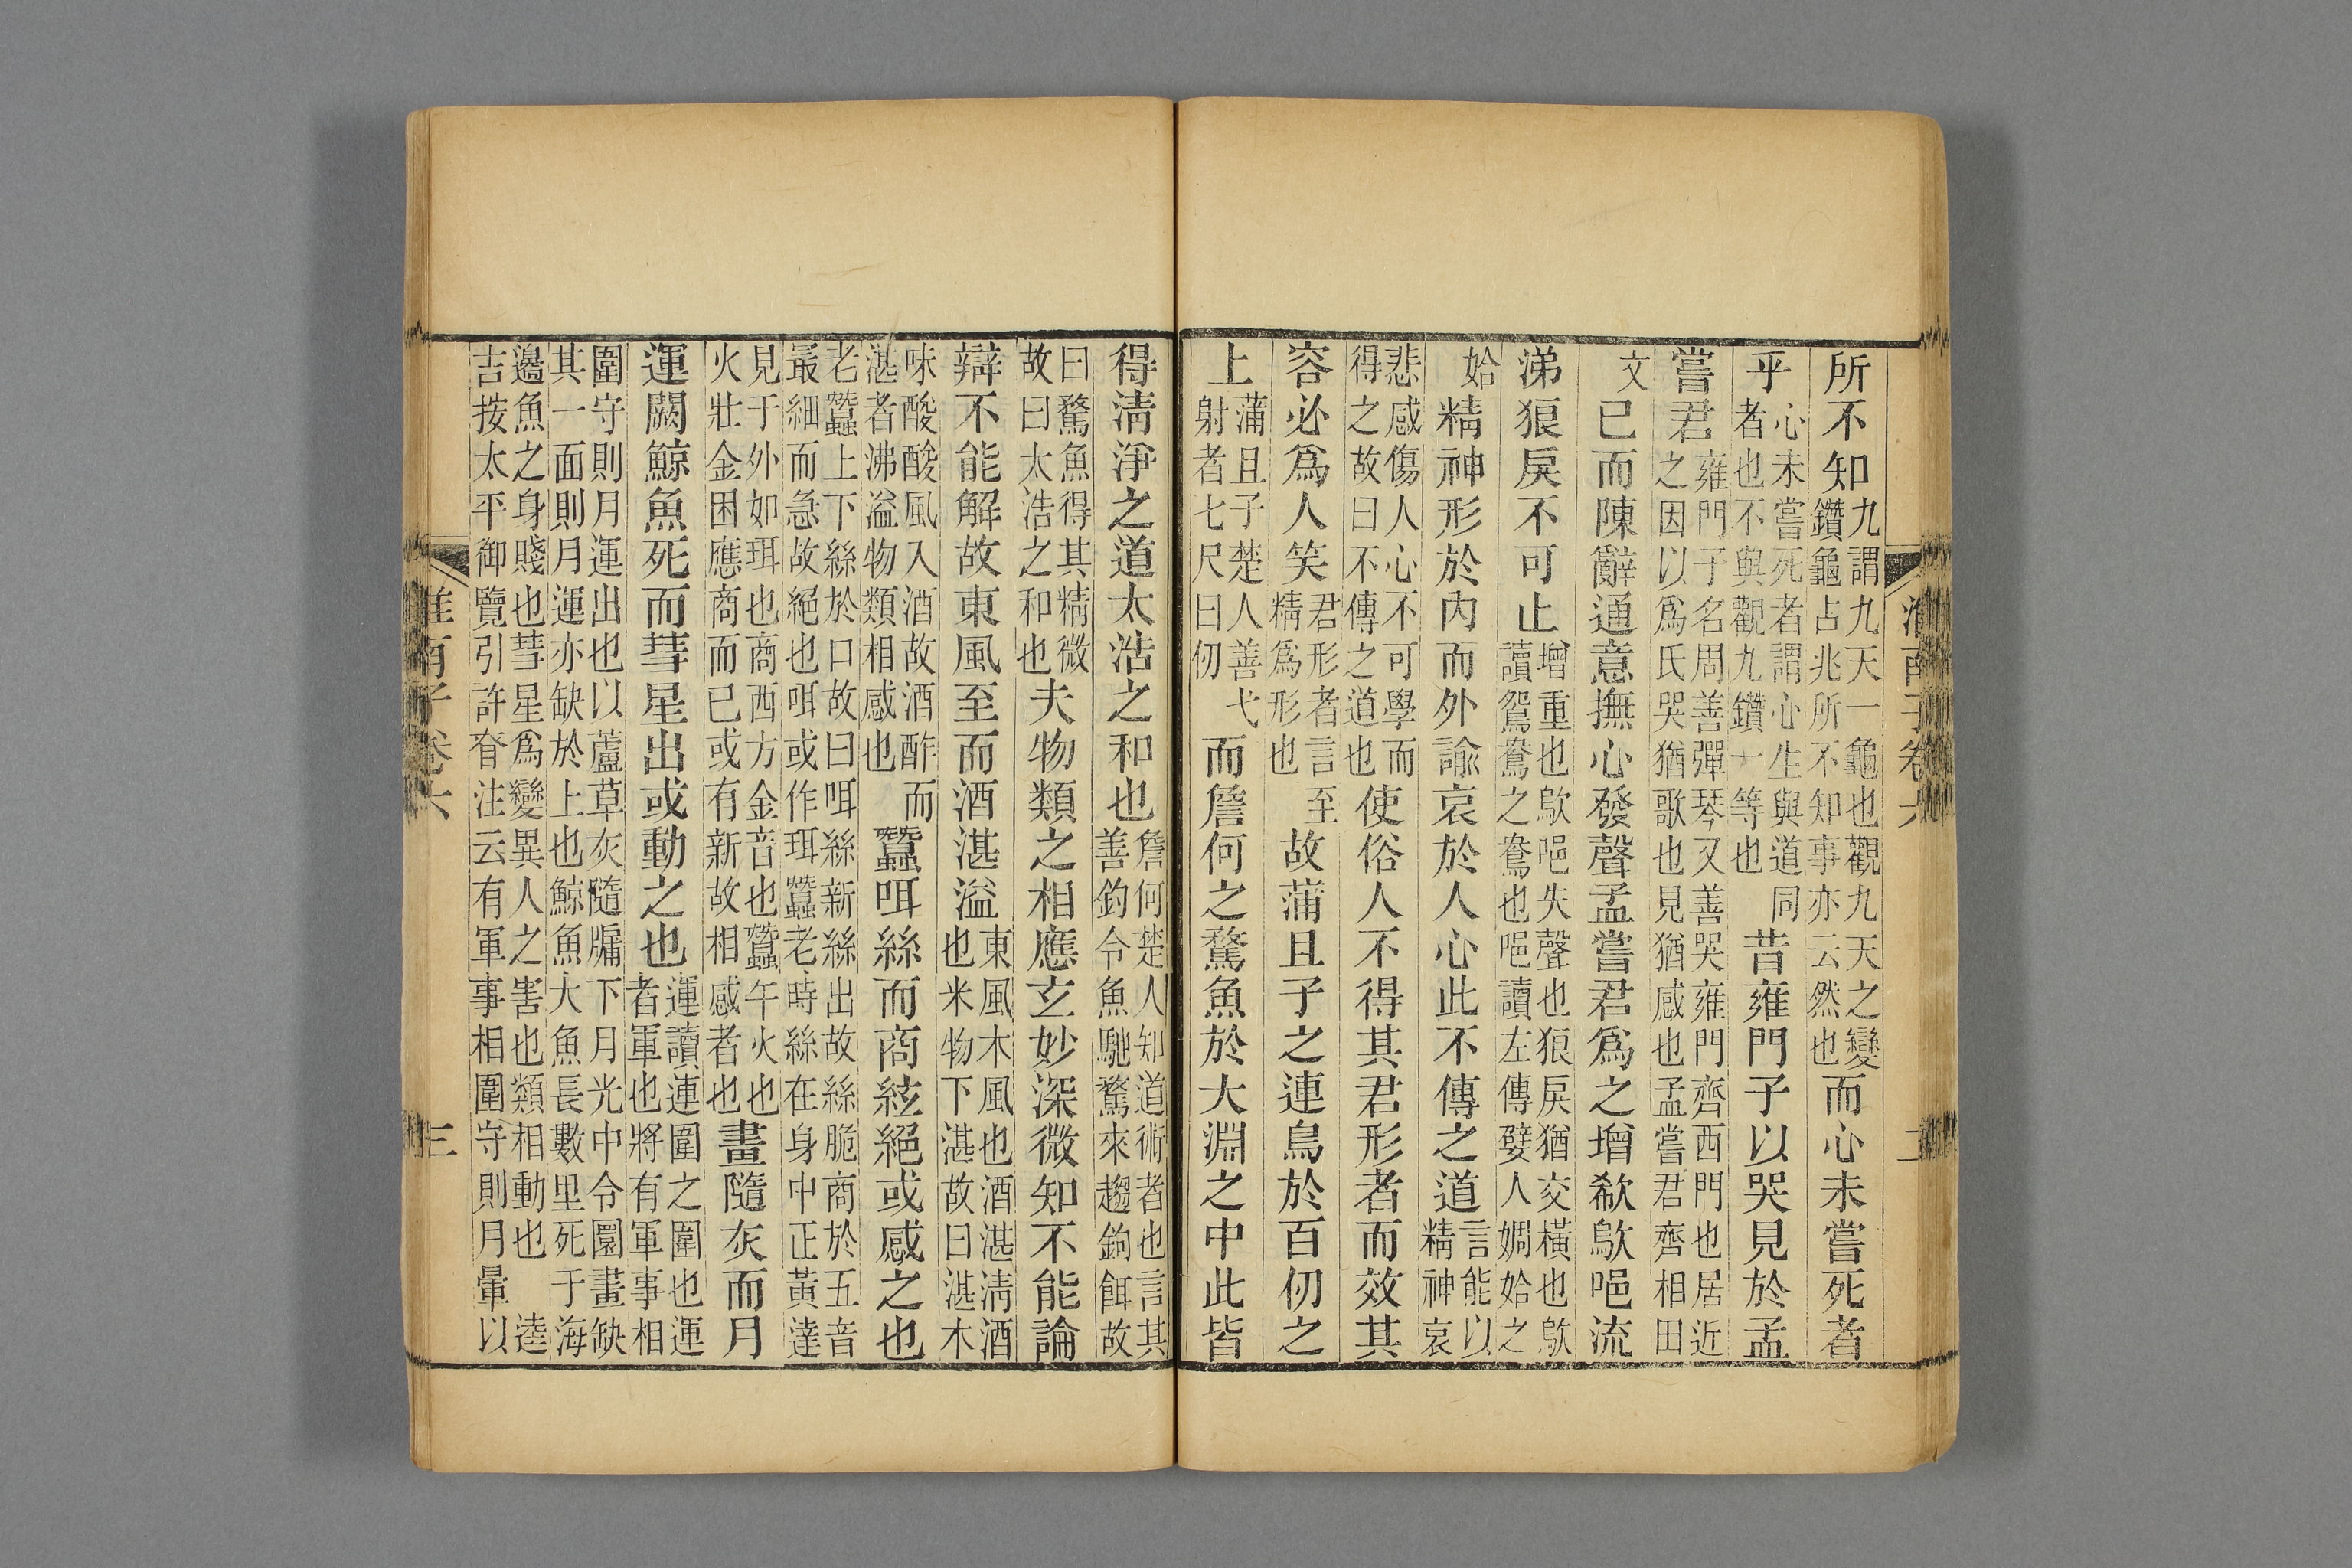 淮南子卷六 二
所不知九謂九天一龜也觀九天之變鑽龜占兆所不知事亦云然也而心未嘗死者
乎心未嘗死者謂心生與道同者也不與觀九鑽一等也昔雍門子以哭見於孟
嘗君雍門子名周善彈琴又善哭雍門齊西門也居近之因以爲氏哭猶歌也見猶感也孟嘗君齊相田
文已而陳辭通意撫心發聲孟嘗君爲之增欷歍唈流
涕狼戾不可止增重也歍唈失聲也狼戾猶交橫也歍讀鴛鴦之鴦也唈讀左傳嬖人婤姶之
姶精神形於內而外諭哀於人心此不傳之道言能以精神哀
悲感傷人心不可學而得之故曰不傳之道也使俗人不得其君形者而效其
容必爲人笑君形者言至精爲形也故蒲且子之連鳥於百仞之
上蒲且子楚人善弋射者七尺曰仞而詹何之騖魚於大淵之中此皆
得清淨之道太浩之和也詹何楚人知道術者也言其善釣令魚馳騖來趨鉤餌故
曰騖魚得其精微故曰太浩之和也夫物類之相應玄妙深微知不能論
辯不能解故東風至而酒湛溢東風木風也酒湛清酒也米物下湛故曰湛木
味酸酸風入酒故酒酢而湛者沸溢物類相感也蠶咡絲而商絃絕或感之也
老蠶上下絲於口故曰咡絲新絲出故絲脆商於五音最細而急故絕也咡或作珥蠶老時絲在身中正黃達
見于外如珥也商西方金音也蠶午火也火壯金困應商而已或有新故相感者也畫隨灰而月
運闕鯨魚死而彗星出或動之也運讀連圍之圍也運者軍也將有軍事相
圍守則月運出也以蘆草灰隨牖下月光中令圜畫缺其一面則月運亦缺於上也鯨魚大魚長數里死于海
邊魚之身賤也彗星爲變異人之害也類相動也 逵吉按太平御覽引許昚注云有軍事相圍守則月暈以
淮南子卷六 三